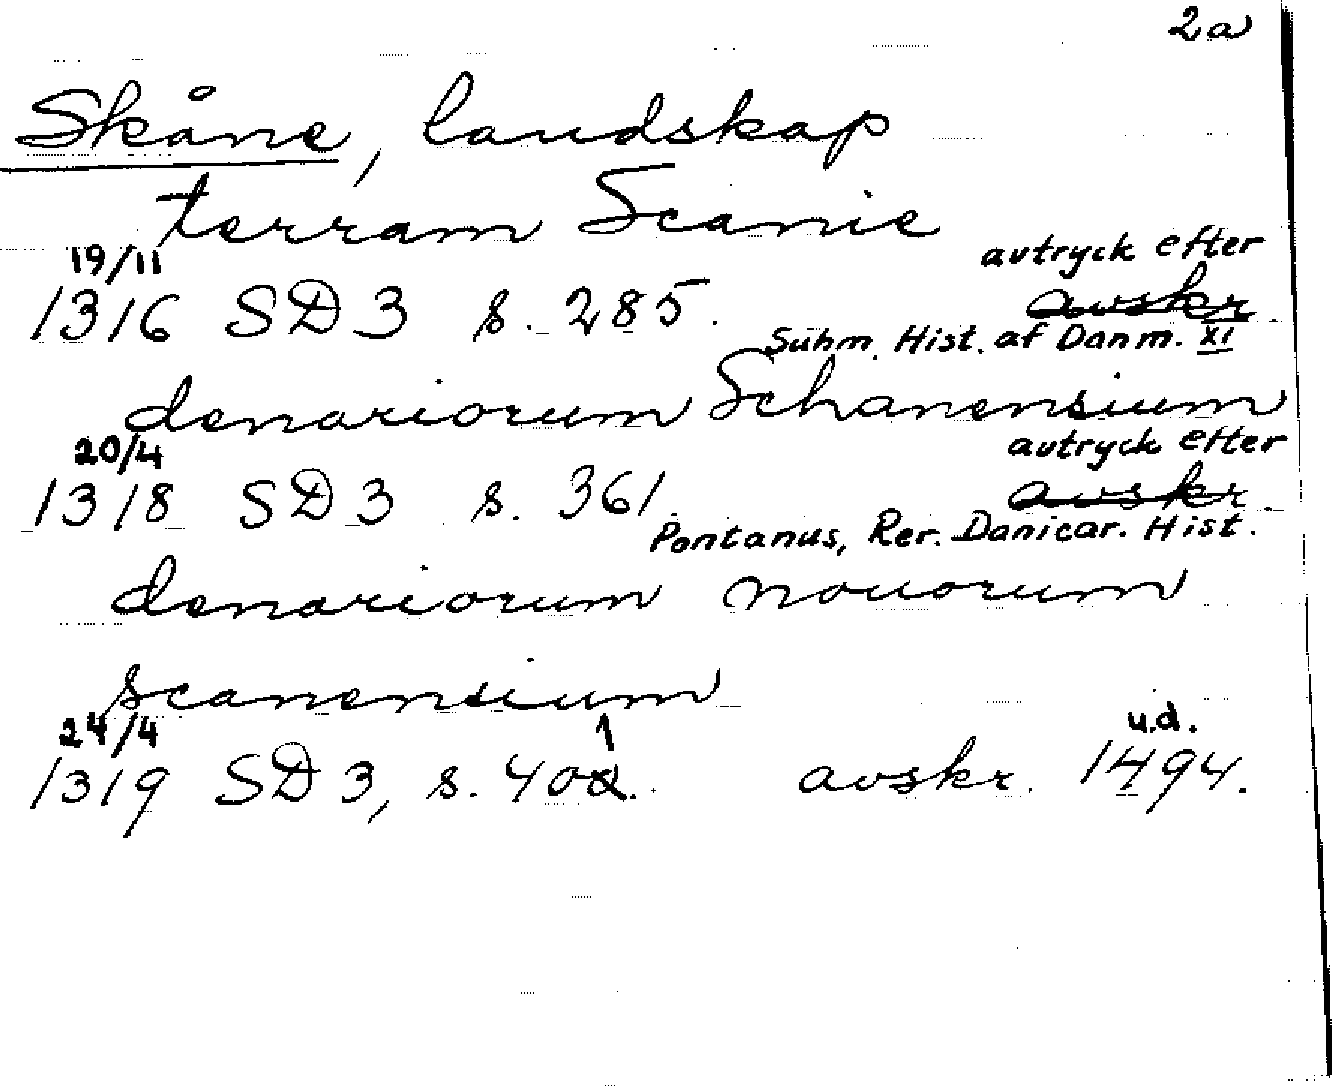 2a
Skåne, landskap
terram Scanie
19/11 avtryck efter
1316 SD 3 s. 285. avskr.
Suhm, Hist. af Danm. XI
denariorum Schanensium
20/4 avtryck efter
1318 SD 3 s. 361. avskr.
Pontanus, Rer. Danicar. Hist.
denariorum nouorum
scanensium
24/4 1 u.d.
1319 SD 3, s. 402. avskr. 1494.